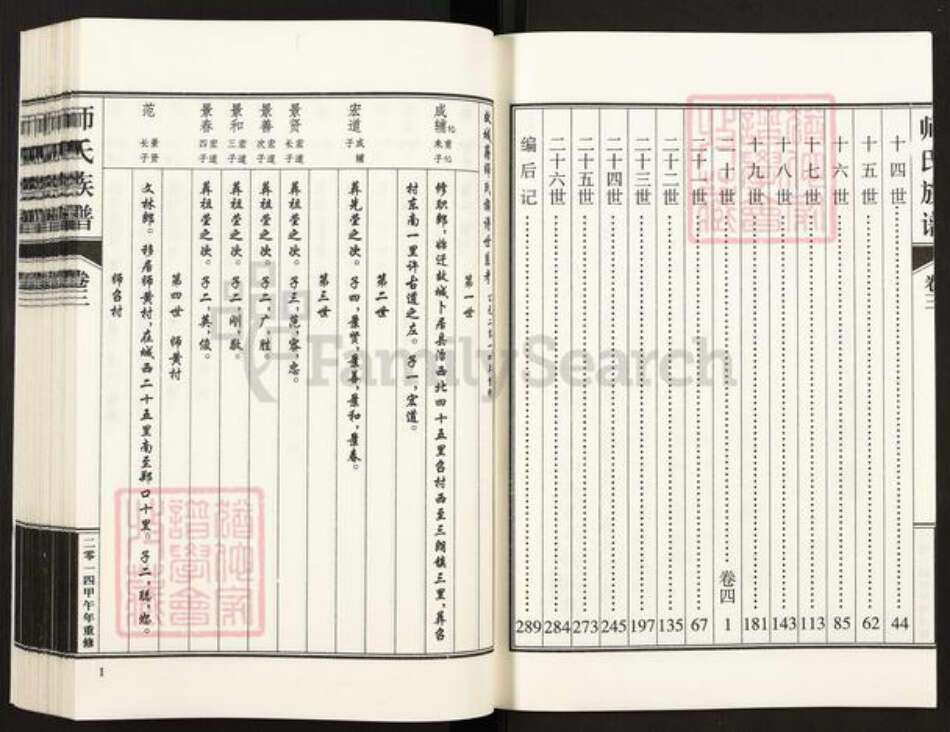 师氏族谱
卷三
十四世 44
十五世 62
十六世 85
十七世 113
十八世 143
十九世 181
卷四
二十世 1
二十一世 67
二十二世 135
二十三世 197
二十四世 245
二十五世 273
二十六世 284
编后记 289
第一世
成辅
修职郎，始迁故城卜居县治西北四十五里
村东南一里许古道之左。子一，宏道。
第二世
宏道 成辅子
葬先茔之次。子四，景贤，景善，景和，景春。
第三世
景贤 宏道长子
葬祖茔之次。子三，范，容，忠。
景善 宏道次子
葬祖茔之次。子二，广，胜
景和 宏道三子
葬祖茔之次。子二，刚，敬
景春 宏道四子
葬祖茔之次。子二，英，俊。
第四世 师黄村
范 景贤长子
文林郎。移居师黄村，在城西二十五里南至郑口十里。子二，聪，
师召村
师氏族谱
卷三
二零一四甲午年重修
1
FamilySearch